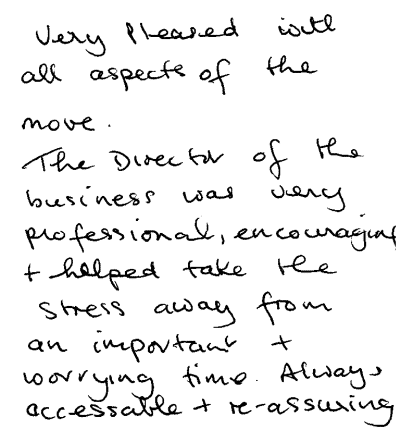 Very Pleased with
all aspects of the
move.
The Director of the
business was very
professional, encouraging
+ helped take the
stress away from
an important +
worrying time. Always
accessable + re-assuring